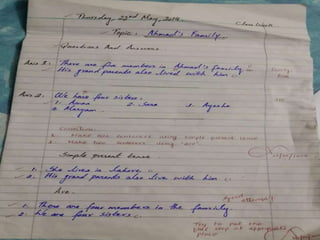 Thursday 22nd May, 2014.
Class Work
Topic: Ahmad's Family.
Questions And Answers
Ans 1: There are five members in Ahmad's family.
His grand parents also lived with him.
Ans 2: We have four sisters.
1. Amna 2. Sara 3. Ayesha
4. Maryam.
Correction:
1. Make one sentences using simple present tense
2. Make two sentences using "are".
Simple present tense
1. She lives in Lahore.
2. His grand parents also live with him.
Are.
1. There are four members in the family
2. We are four sisters.
Try to put one
full stop at appropriate
place